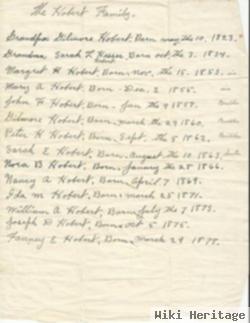 The Hobert Family.
Grandpa Gilmore Hobert, Born may the 10, 1823.
Grandma, Sarah L Hobert, Born oct. the 3. 1834.
Margret H Hobert, Born, nov. the 15. 1853.
Mary A Hobert, Born. Dec. 2 1855.
John F Hobert, Born. Jan the 9 1857.
Gilmore Hobert, Born, march the 29 1860.
Peter H Hobert, Born, Sept. the 5 1862.
Sarah E Hobert, Born. August, the 10. 1863,
Nora B Hobert, Born, January the 25 1866.
Nancy A Hobert, Born, April, 7 1869.
Ida M Hobert, Born; march 25 1871.
William A Hobert, Born, July the 7 1873.
Joseph D Hobert, Born, Oct 5, 1875.
Fanney E Hobert, Born, march 29 1878.
Wiki Heritage